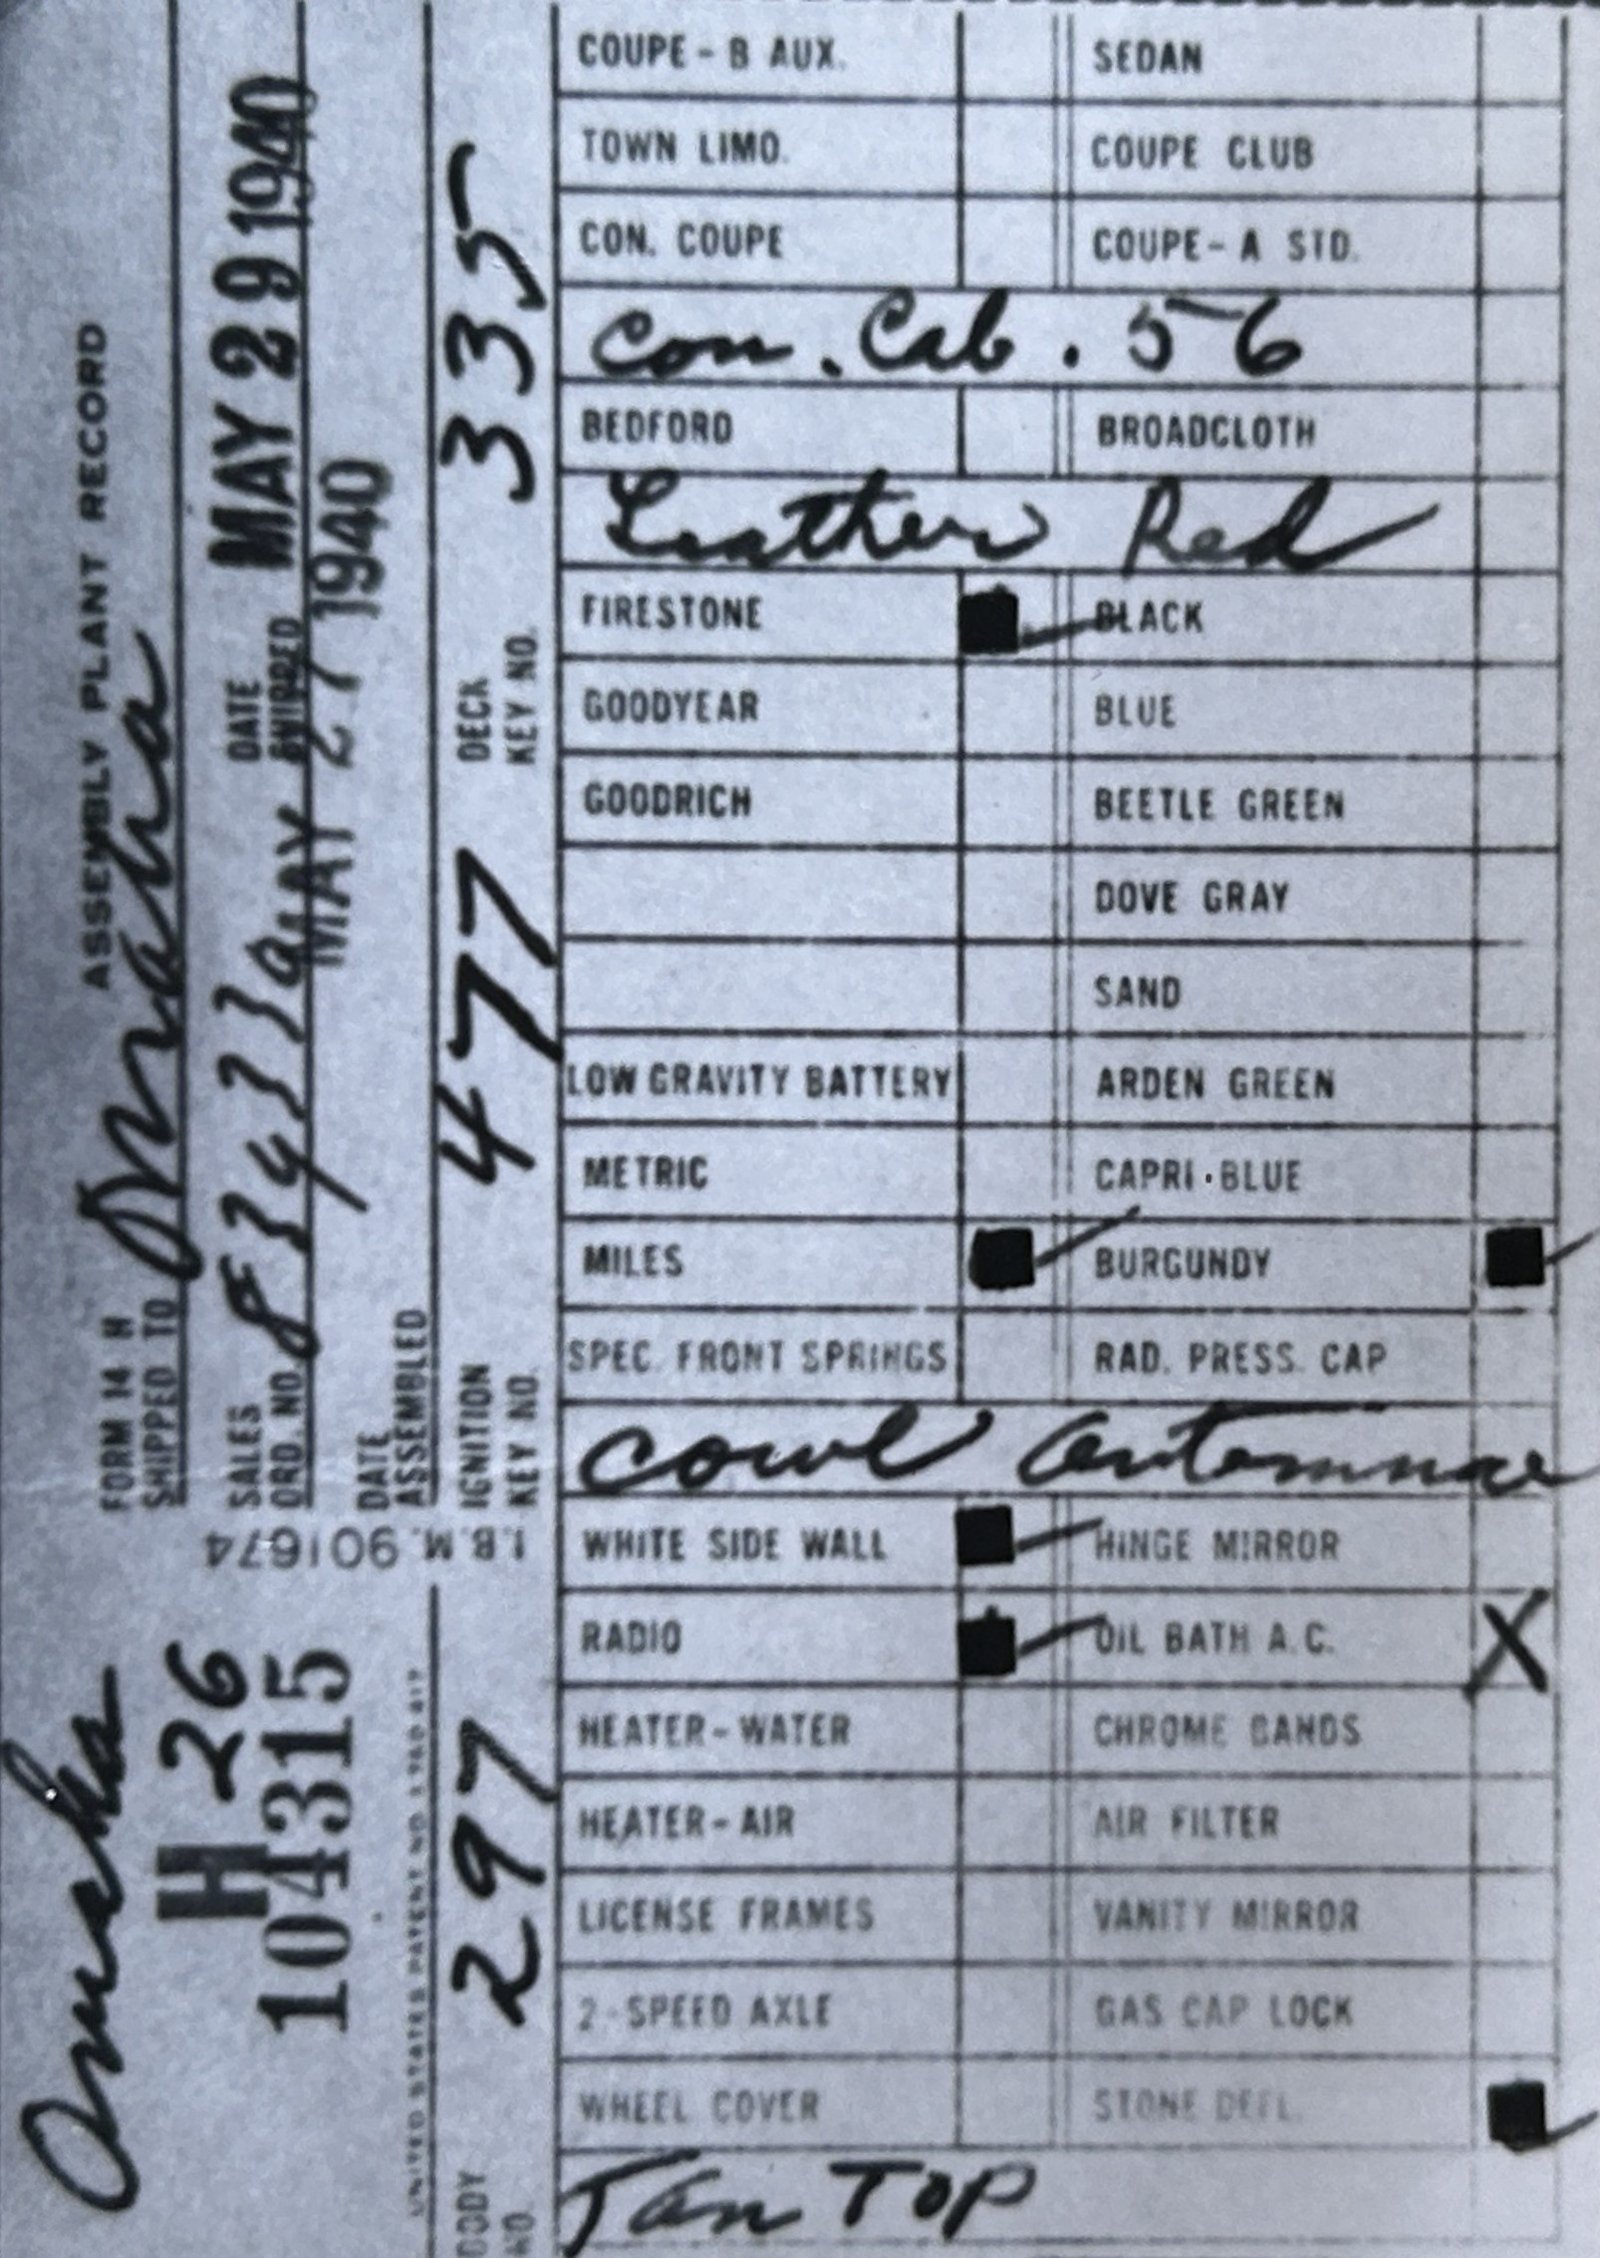 FORM 14 H ASSEMBLY PLANT RECORD
SHIPPED TO Omaha
SALES ORD. NO. DATE SHIPPED MAY 29 1940
DATE ASSEMBLED MAY 27 1940
IGNITION KEY NO. 477 DECK KEY NO. 335
I.B.M. 901674
Omaha
H 26
104315
UNITED STATES PATENT NO.
BODY NO. 297
COUPE - B AUX. SEDAN
TOWN LIMO. COUPE CLUB
CON. COUPE COUPE - A STD.
Con. Cab. 56
BEDFORD BROADCLOTH
Leather Red
FIRESTONE BLACK
GOODYEAR BLUE
GOODRICH BEETLE GREEN
DOVE GRAY
SAND
LOW GRAVITY BATTERY ARDEN GREEN
METRIC CAPRI · BLUE
MILES BURGUNDY
SPEC. FRONT SPRINGS RAD. PRESS. CAP
Cowl
WHITE SIDE WALL HINGE MIRROR
RADIO OIL BATH A.C. X
HEATER - WATER CHROME BANDS
HEATER - AIR AIR FILTER
LICENSE FRAMES VANITY MIRROR
2 - SPEED AXLE GAS CAP LOCK
WHEEL COVER STONE DEFL.
Tan TOP